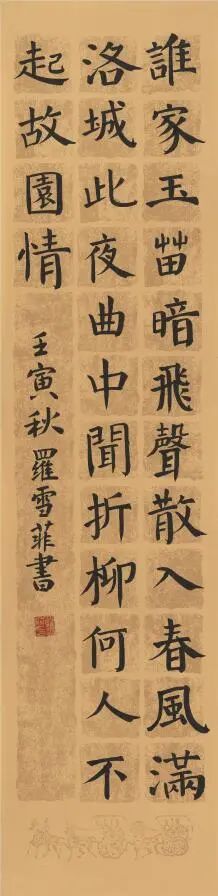 誰家玉苗暗飛聲散入春風滿
洛城此夜曲中聞折柳何人不
起故園情
壬寅秋 羅雪菲書